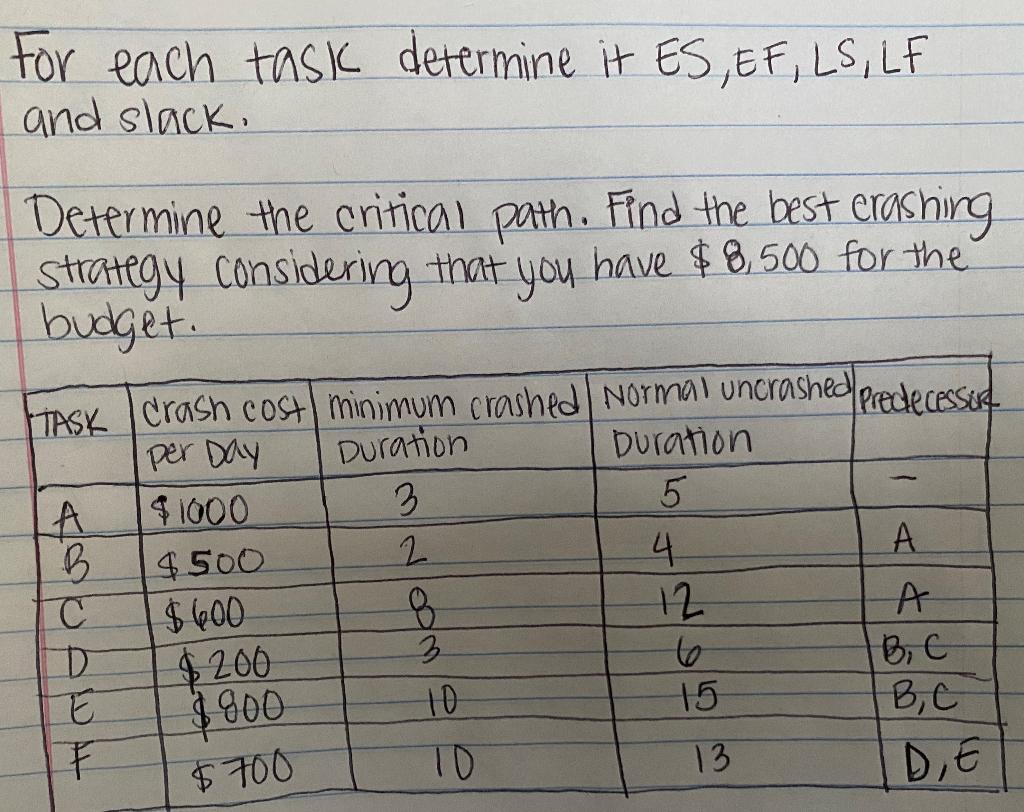 For each task determine it ES, EF, LS, LF
and slack.
Determine the critical path. Find the best crashing
strategy considering that you have $8,500 for the
budget.
TASK | crash cost per Day | minimum crashed Duration | Normal uncrashed Duration | Predecessor
A | $1000 | 3 | 5 | –
B | $500 | 2 | 4 | A
C | $600 | 8 | 12 | A
D | $200 | 3 | 6 | B, C
E | $800 | 10 | 15 | B, C
F | $700 | 10 | 13 | D, E